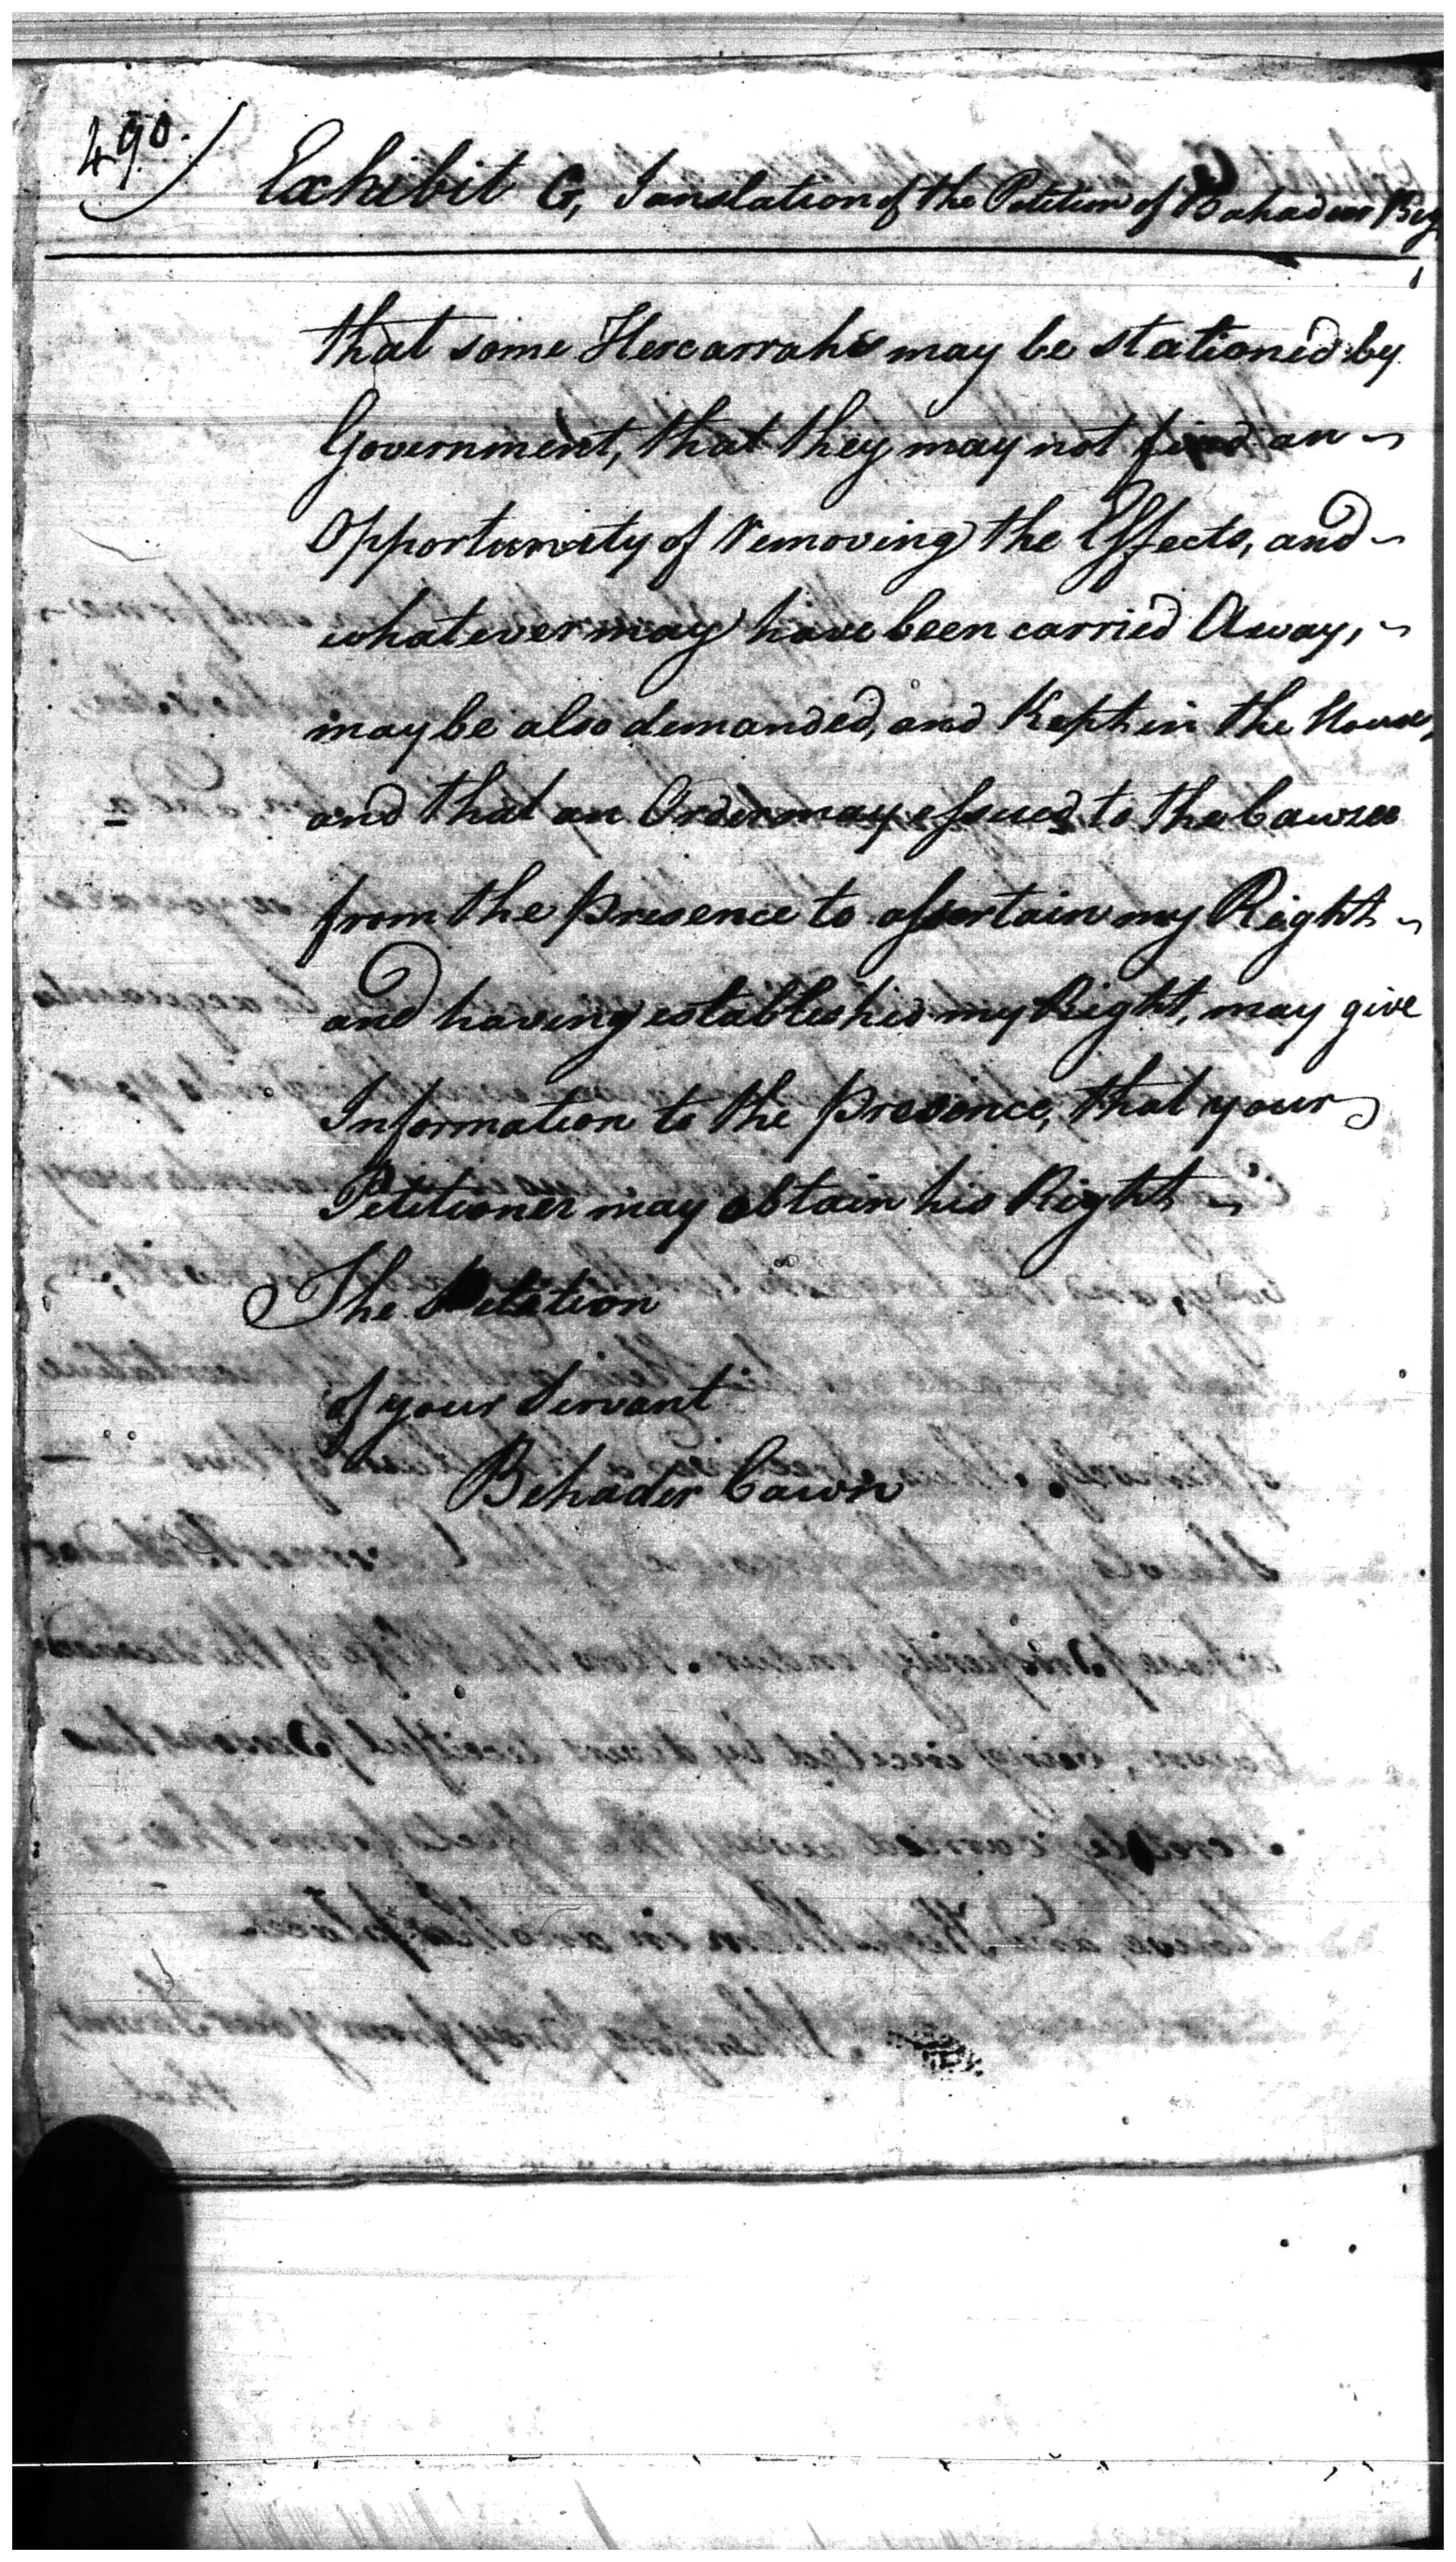 490.
Exhibit G, Tanslation of the Petition of Bahadur Beg
that some Hercarrahs may be stationed by
Government, that they may not find an
Opportunity of removing the Effects, and
whatever may have been carried Away,
may be also demanded, and Kept in the House,
and that an Order may essued to the Cawzee
from the Presence to assertain my Right
and having established my Right, may give
Information to the Presence, that your
Petitioner may obtain his Right
The Petition
of your Servant
Behader Cawn